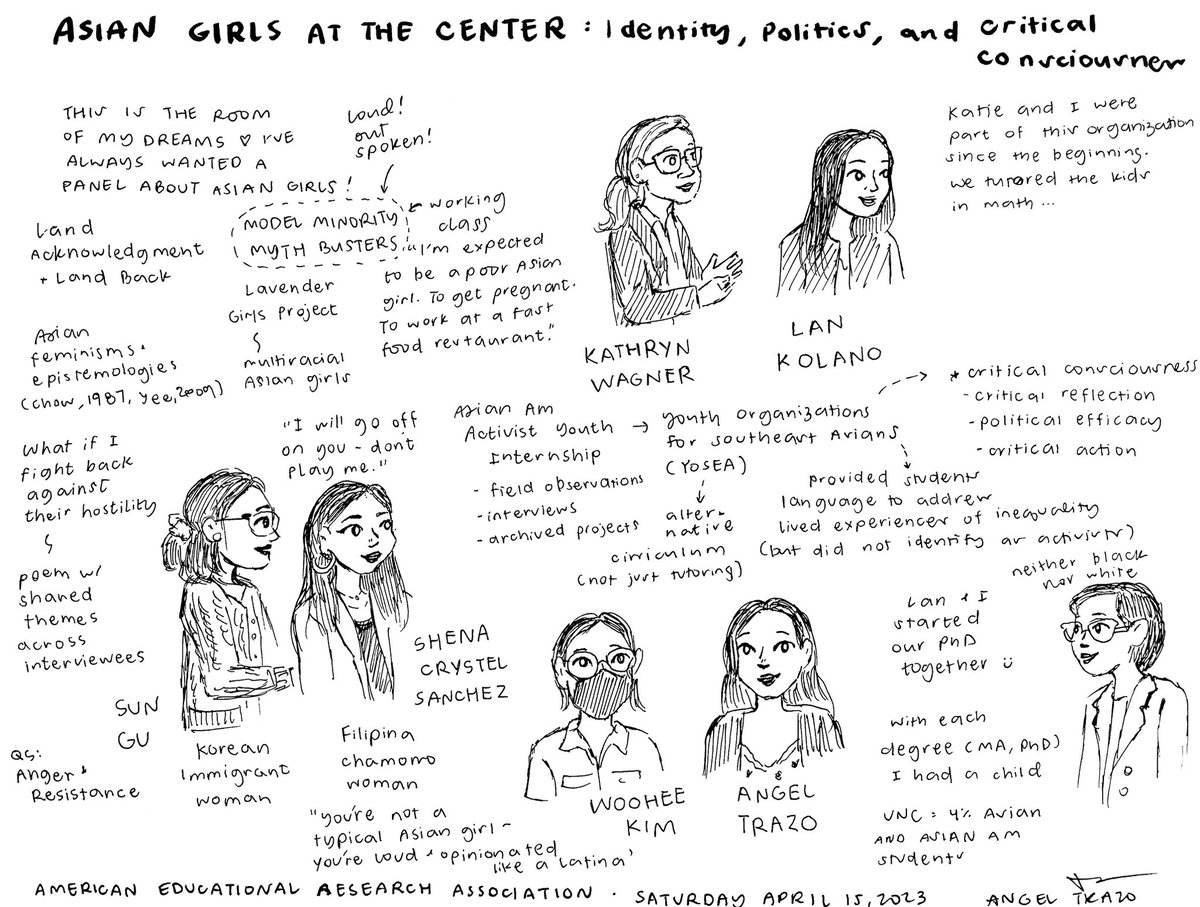 ASIAN GIRLS AT THE CENTER: Identity, Politics, and Critical
Consciousness
THIS IS THE ROOM
OF MY DREAMS ♡ I'VE
ALWAYS WANTED A
PANEL ABOUT ASIAN GIRLS!
Loud!
out
spoken!
Land
Acknowledgment
+ Land Back
MODEL MINORITY
MYTH BUSTERS
working
class
Lavender
Girls Project
multiracial
Asian girls
"I'm expected
to be a poor Asian
girl. To get pregnant.
To work at a fast
food restaurant."
Asian
feminisms +
epistemologies
(Chow, 1987, Yee, 2009)
KATHRYN
WAGNER
LAN
KOLANO
Katie and I were
part of this organization
since the beginning.
We tutored the kids
in math...
What if I
fight back
against
their hostility
poem w/
shared
themes
across
interviewees
"I will go off
on you - don't
play me."
Asian Am
Activist Youth
Internship
- field observations
- interviews
- archived projects
→ Youth Organizations
for Southeast Asians
(YOSEA)
alter-
native
cirriculum
(not just tutoring)
* critical consciousness
- critical reflection
- political efficacy
- critical action
provided students
language to address
lived experiences of inequality
(but did not identify as activists)
neither black
nor white
SUN
GU
Korean
Immigrant
woman
SHENA
CRYSTEL
SANCHEZ
Filipina
chamorro
woman
"you're not a
typical Asian girl -
you're loud + opinionated
like a Latina'
Qs:
Anger +
Resistance
WOOHEE
KIM
ANGEL
TRAZO
Lan + I
started
our PhD
together
With each
degree (MA, PhD)
I had a child
UNC: 4% Asian
AND ASIAN AM
students
AMERICAN EDUCATIONAL RESEARCH ASSOCIATION · SATURDAY APRIL 15, 2023
ANGEL TRAZO